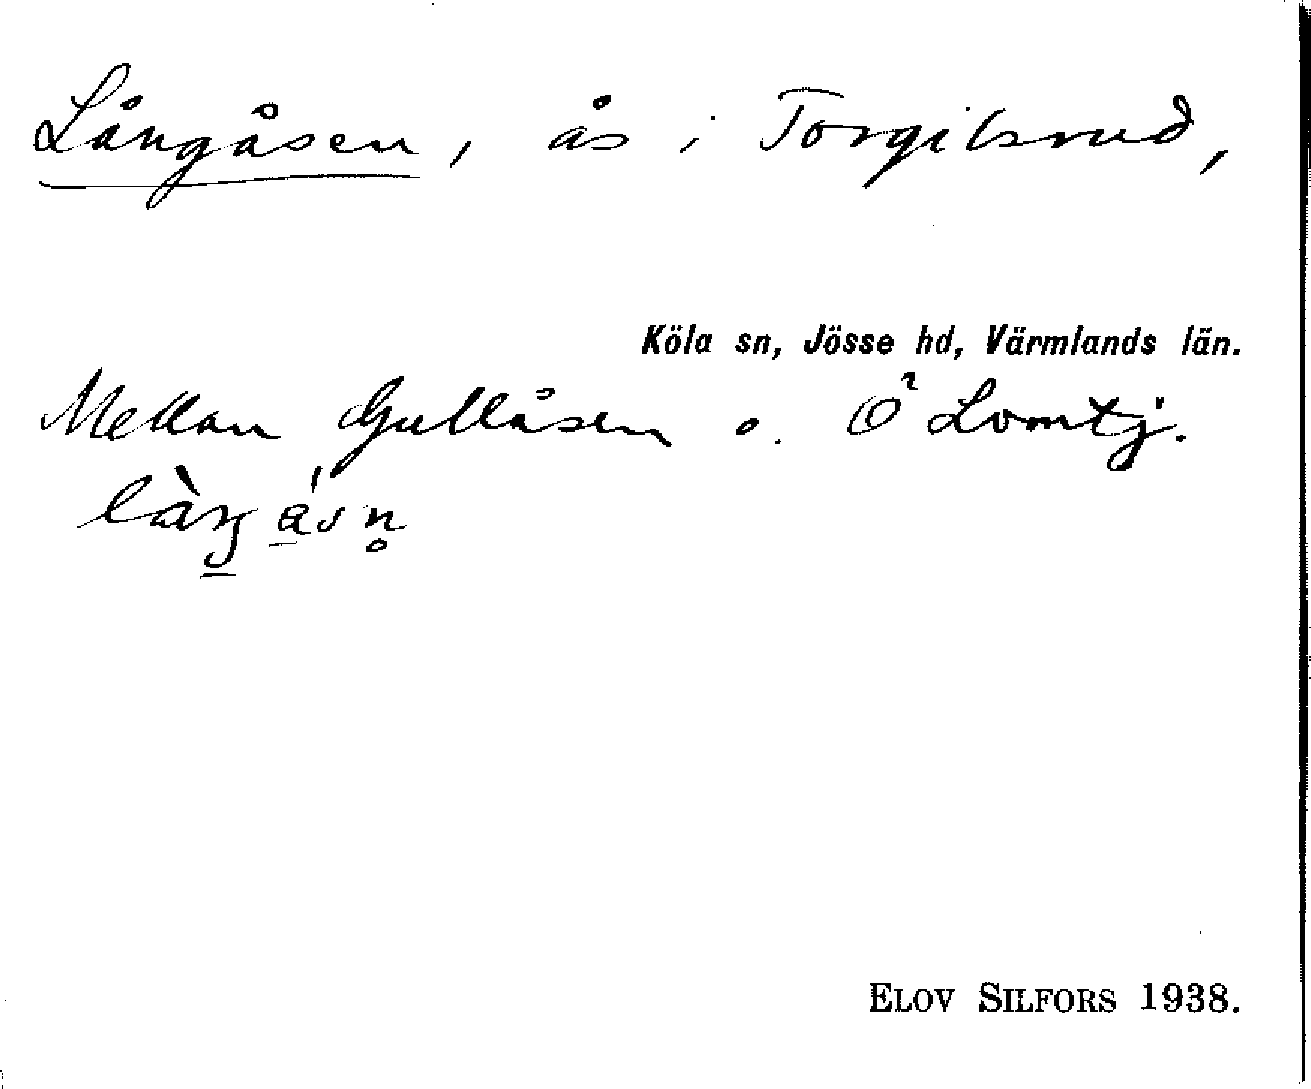 Långåsen, ås i Torgilsrud,
Köla sn, Jösse hd, Värmlands län.
Mellan Gullåsen o. Ö Lomtj.
ELOV SILFORS 1938.